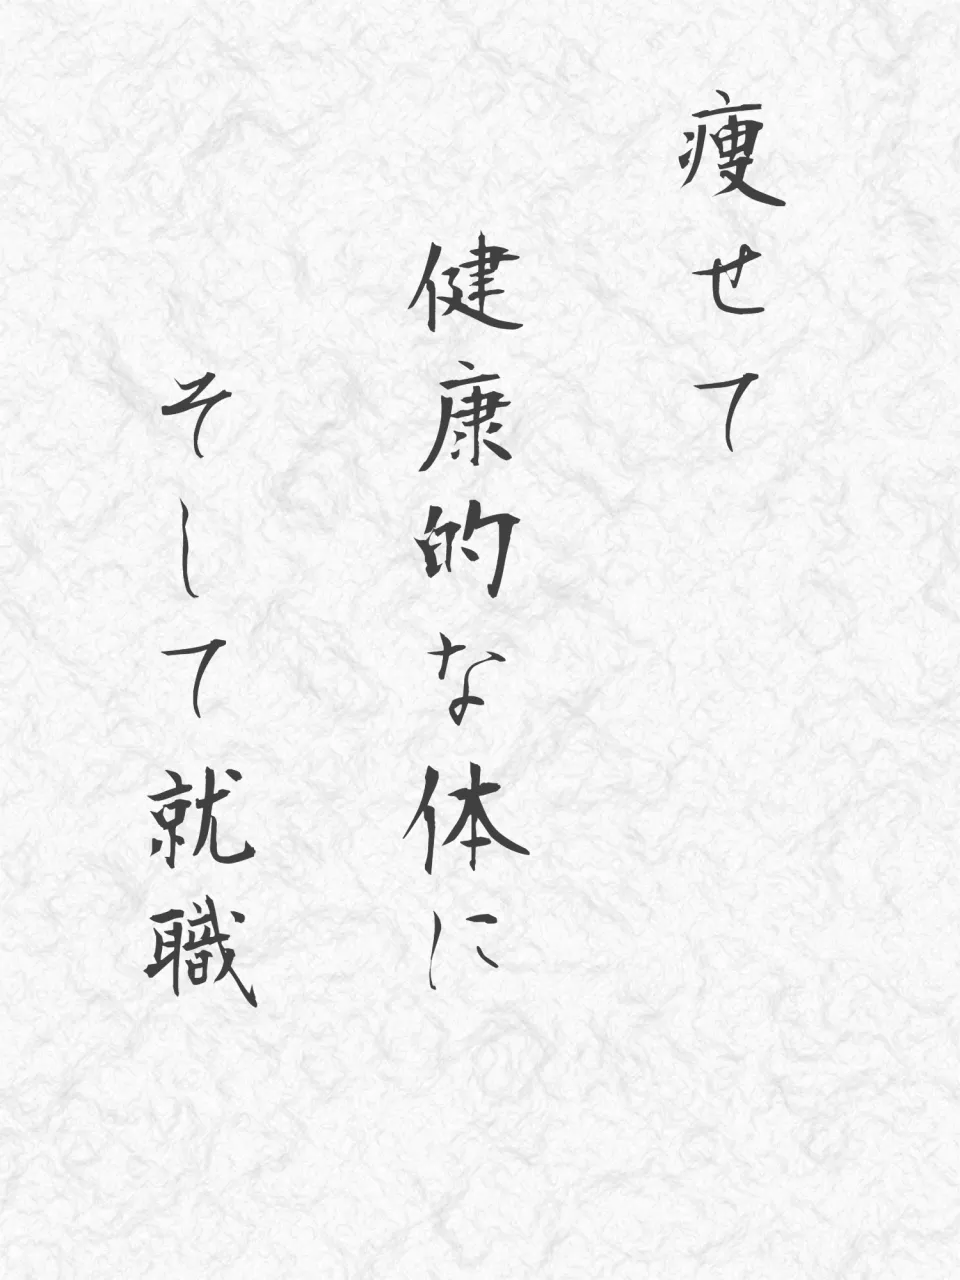 痩せて
健康的な体に
そして就職